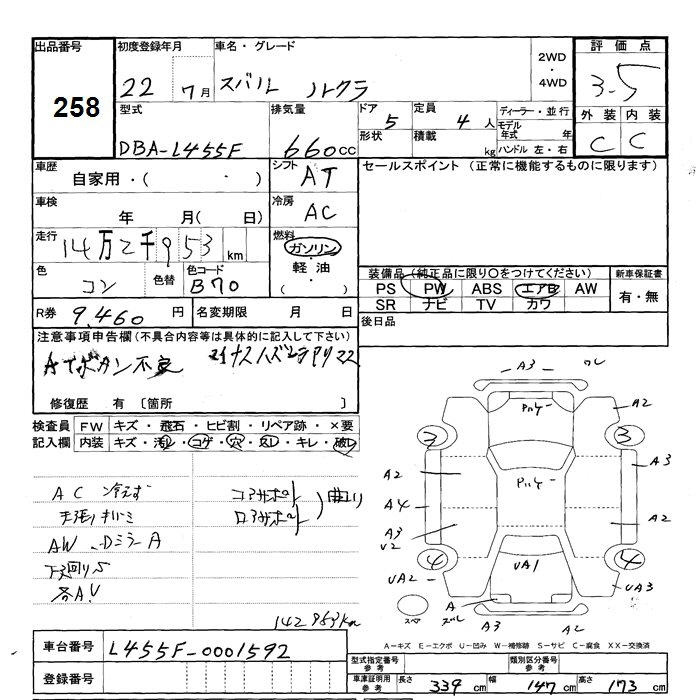 出品番号
258
初度登録年月
22 7月
車名・グレード
スバル ルクラ
2WD
・
4WD
評価点
3.5
型式
DBA-L455F
排気量
660cc
ドア 5
形状
定員 4人
積載 kg
ディーラー・並行
モデル年式 年
ハンドル 左・右
外装 内装
C C
車歴
自家用・( ・ )
シフト
AT
セールスポイント (正常に機能するものに限ります)
車検
年 月( 日)
冷房
AC
走行
14万2千953km
燃料
ガソリン
・
軽油
( )
色
コン
色替
色コード
B70
装備品 (純正品に限り○をつけてください)
PS PW ABS エアB AW
SR ナビ TV カワ
新車保証書
有・無
R券 9,460円
名変期限 月 日
後日品
注意事項申告欄(不具合内容等は具体的に記入して下さい)
修復歴 有 [箇所 ]
検査員
記入欄
FW キズ・飛石・ヒビ割・リペア跡・×要
内装 キズ・汚レ・コゲ・穴・スレ・キレ・破レ
AC 冷えず
AW、DミラーA
下廻りS
各AU
コアサポート
ロアサポート
曲り
142953km
A3
A2
3
3
A2
A3
A4
A2
A3
U2
4
4
UA2
UA1
UA3
A
A3
A2
A-キズ E-エクボ U-凹み W-補修跡 S-サビ C-腐食 XX-交換済
車台番号 L455F-0001592
登録番号
型式指定番号
参考
類別区分番号
参考
車庫証明用
参考
長さ 339cm 幅 147cm 高さ 173cm